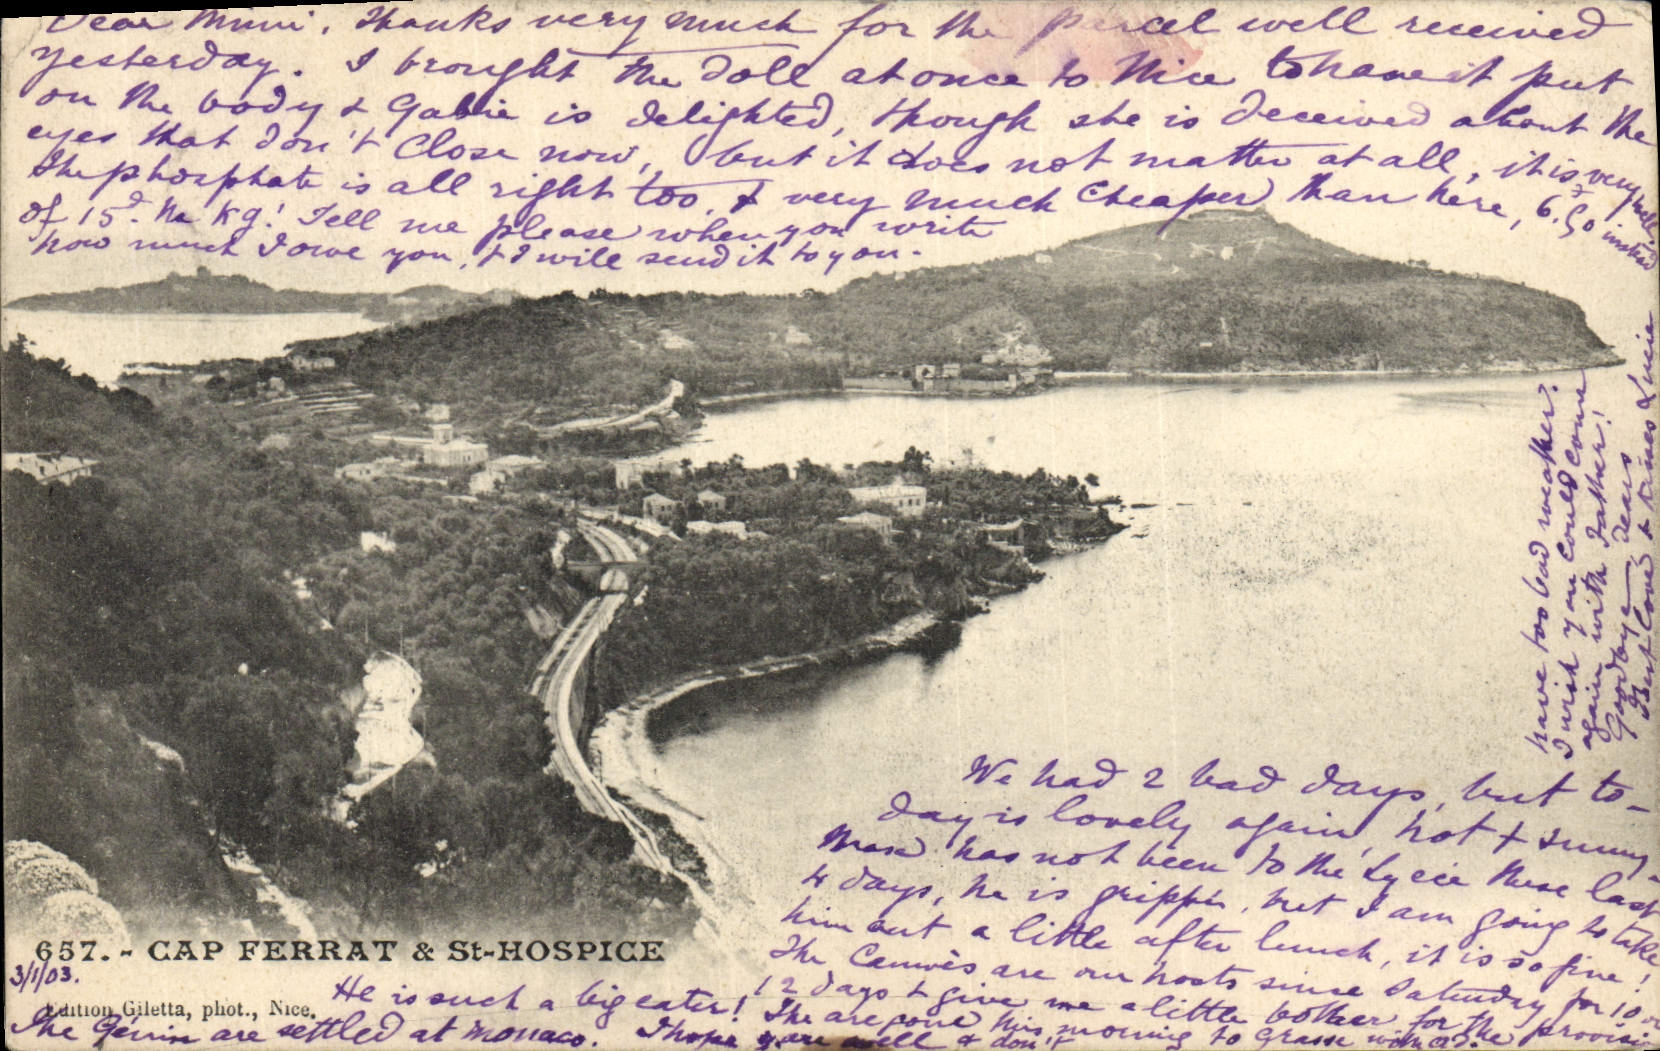 Dear Mimi, Thanks very much for the parcel well received
yesterday. I brought the doll at once to Nice to have it put
on the body & Gabie is delighted, though she is deceived about the
eyes that don't close now, but it does not matter at all, it is very well
The phosphate is all right too, & very much cheaper than here, 6.f50 instead
of 15f. the Kg! Tell me please when you write
how much I owe you, & I will send it to you.
We had 2 bad days, but to-
day is lovely again, hot & sunny.
Max has not been to the Lycée these last
4 days, he is grippé, but I am going to take
him out a little after lunch, it is so fine!
The are our hosts since Saturday for 10 or
12 days & give me a little bother for the
He is such a big eater! The are gone this morning to Grasse with
657. - CAP FERRAT & St-HOSPICE
3/1/03.
Edition Giletta, phot., Nice.
The Génin are settled at Monaco. I hope you are well & don't
have too bad weather.
I wish you could come
again with Father!
Goodbye dears
Best love & kisses Lucie